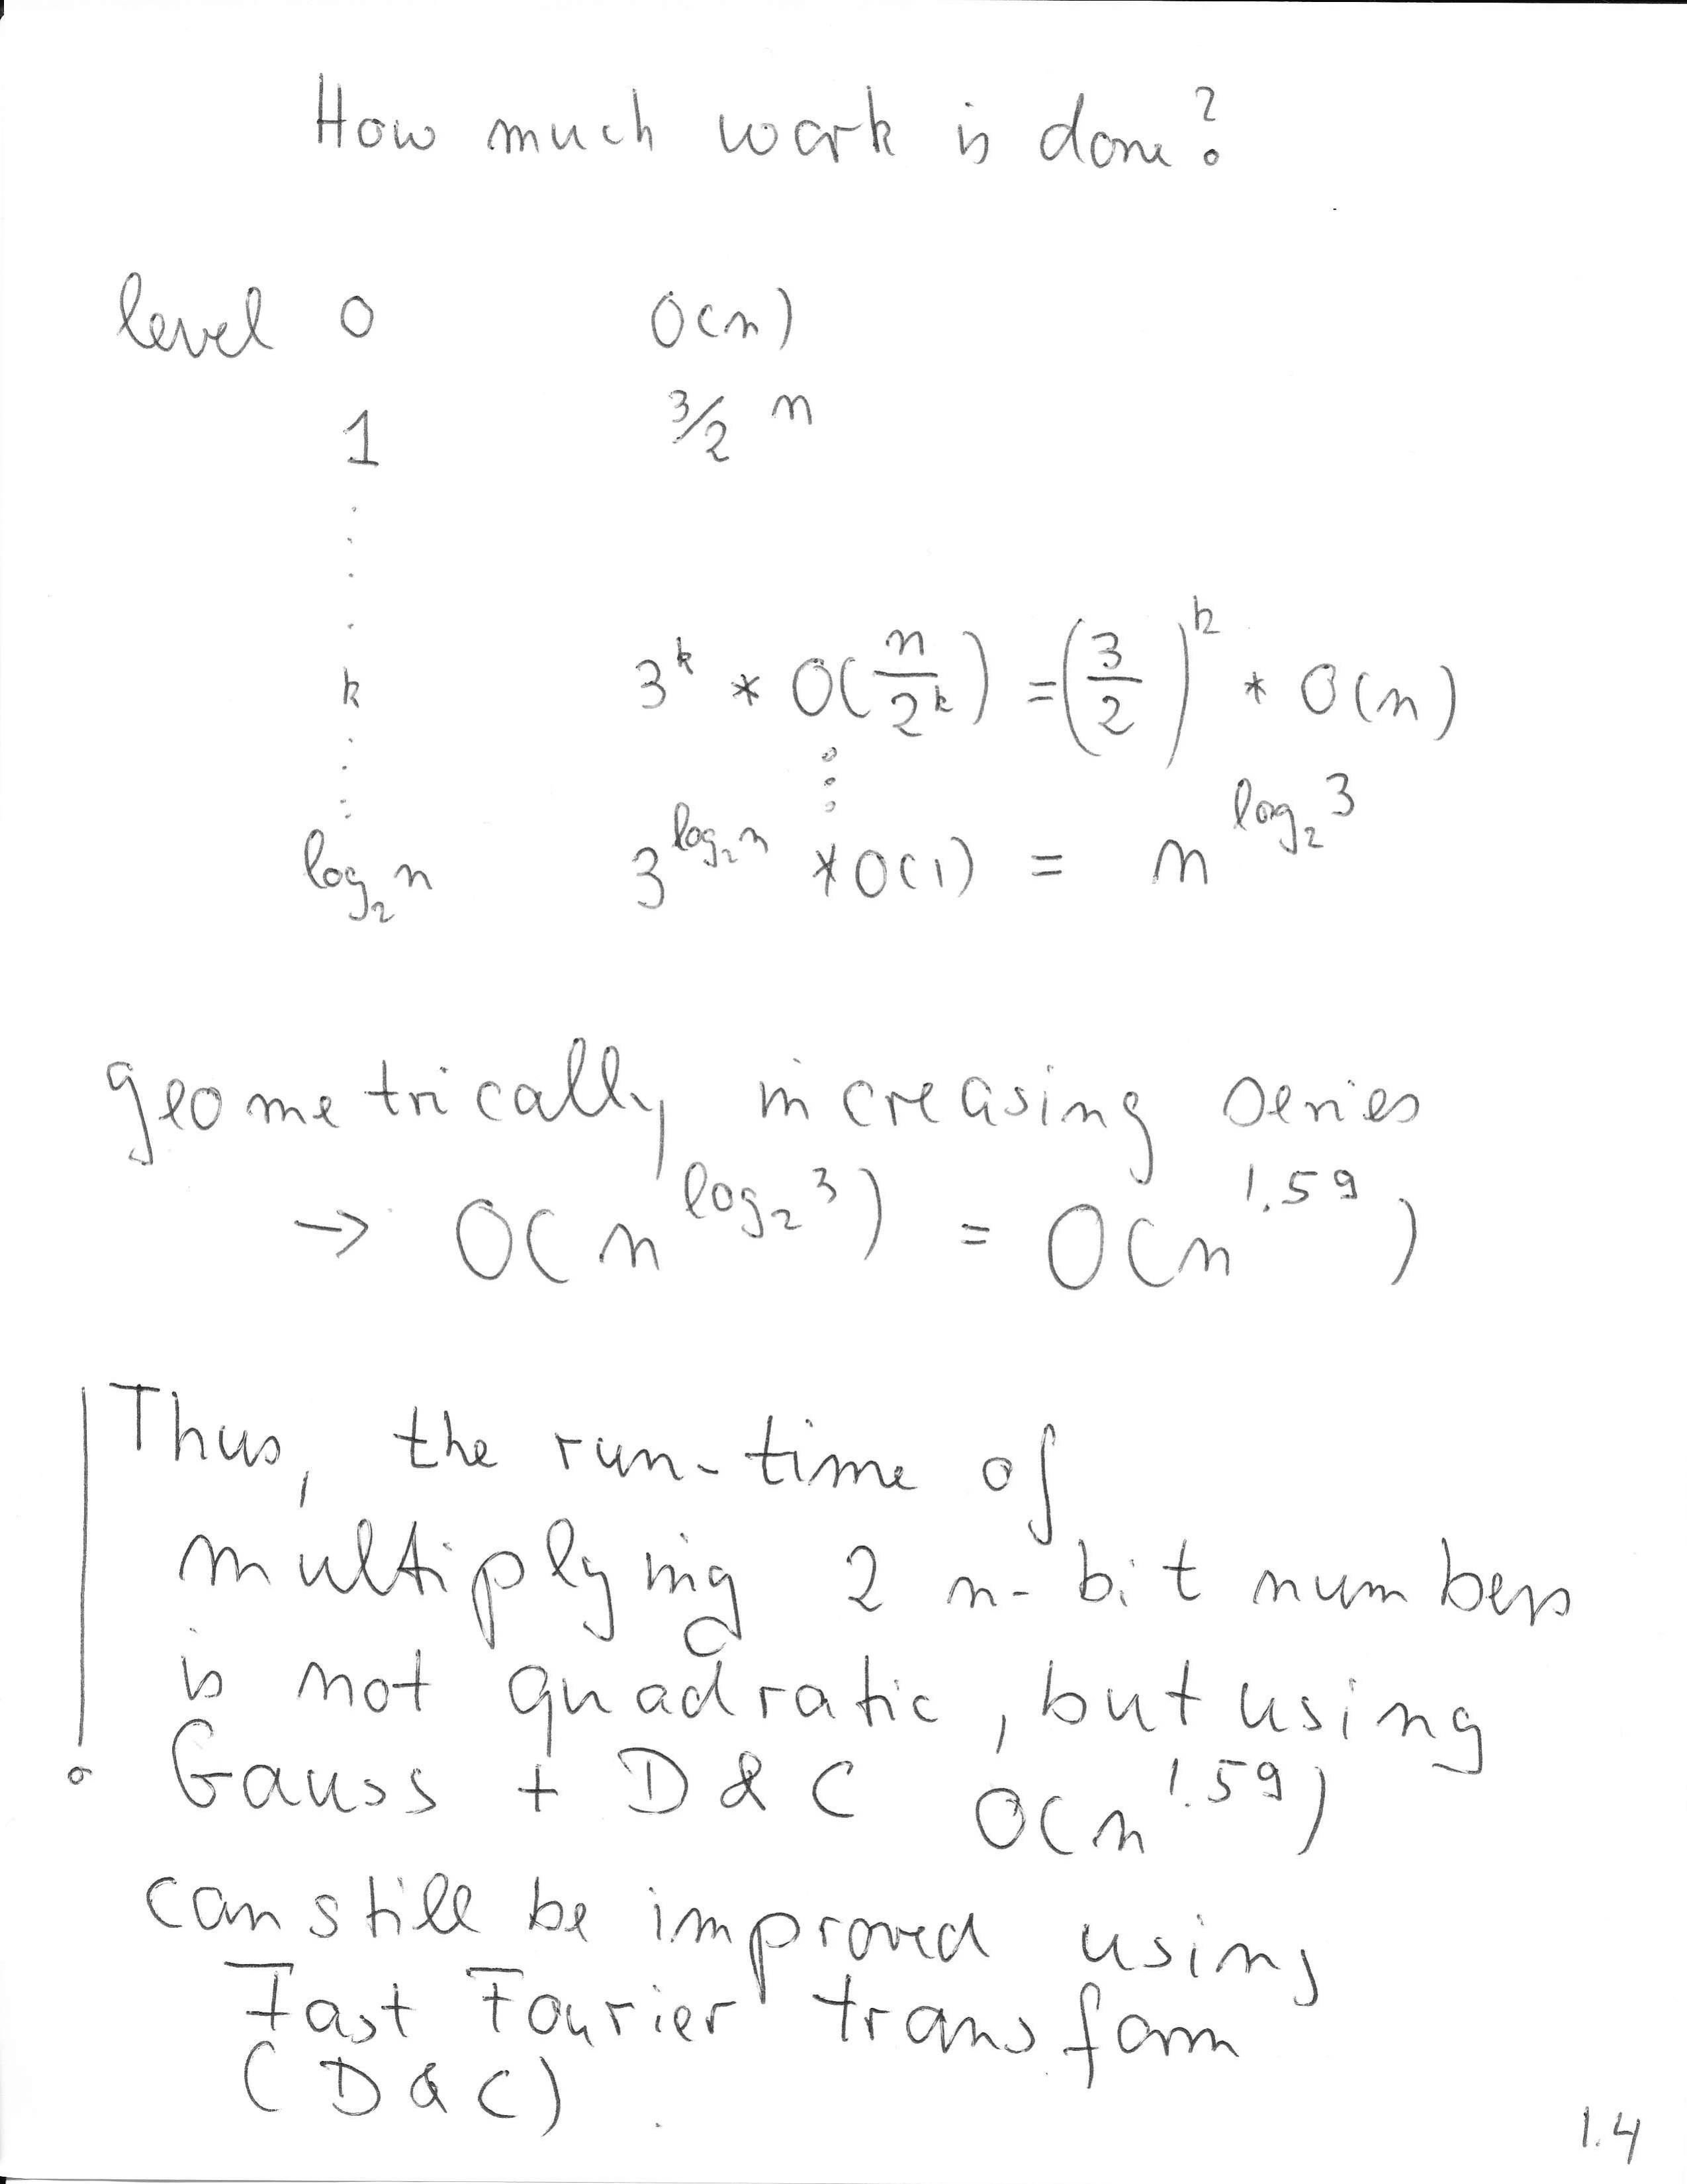 How much work is done?
level 0 O(n)
1 3/2 n
k 3^k * O(n/2^k) = (3/2)^k * O(n)
log₂n 3^log₂n * O(1) = n^log₂3
geometrically increasing series
→ O(n^log₂3) = O(n^1.59)
Thus, the run-time of
multiplying 2 n-bit numbers
is not quadratic, but using
Gauss + D & C O(n^1.59)
can still be improved using
Fast Fourier transform
(D & C)
1.4